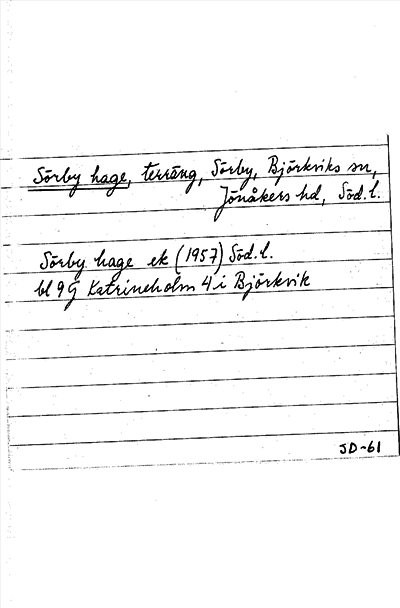 Sörby hage, terräng, Sörby, Björkviks sn,
Jönåkers hd, Söd.l.
Sörby hage ek (1957) Söd.l.
bl 9G Katrineholm 4 i Björkvik
JD-61